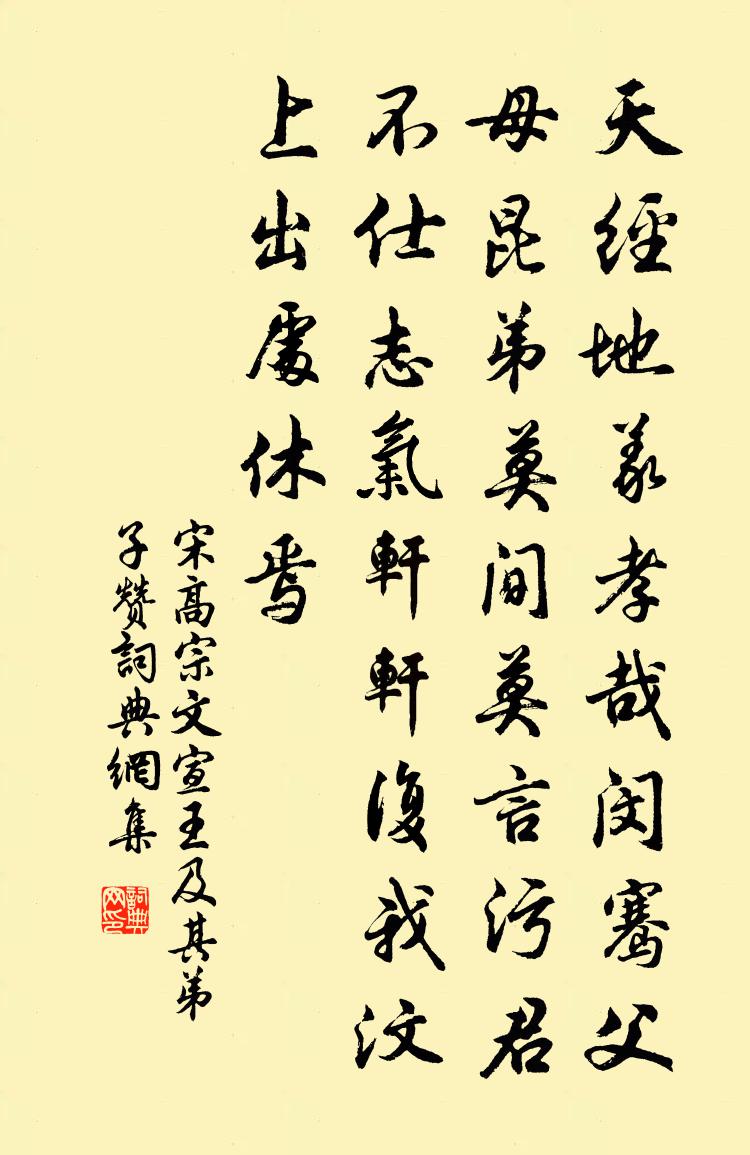 天經地義孝哉閔騫父
母昆弟莫間莫言污君
不仕志氣軒軒復我汶
上出處休焉
宋高宗文宣王及其弟
子贊詞典網集
詞典網印